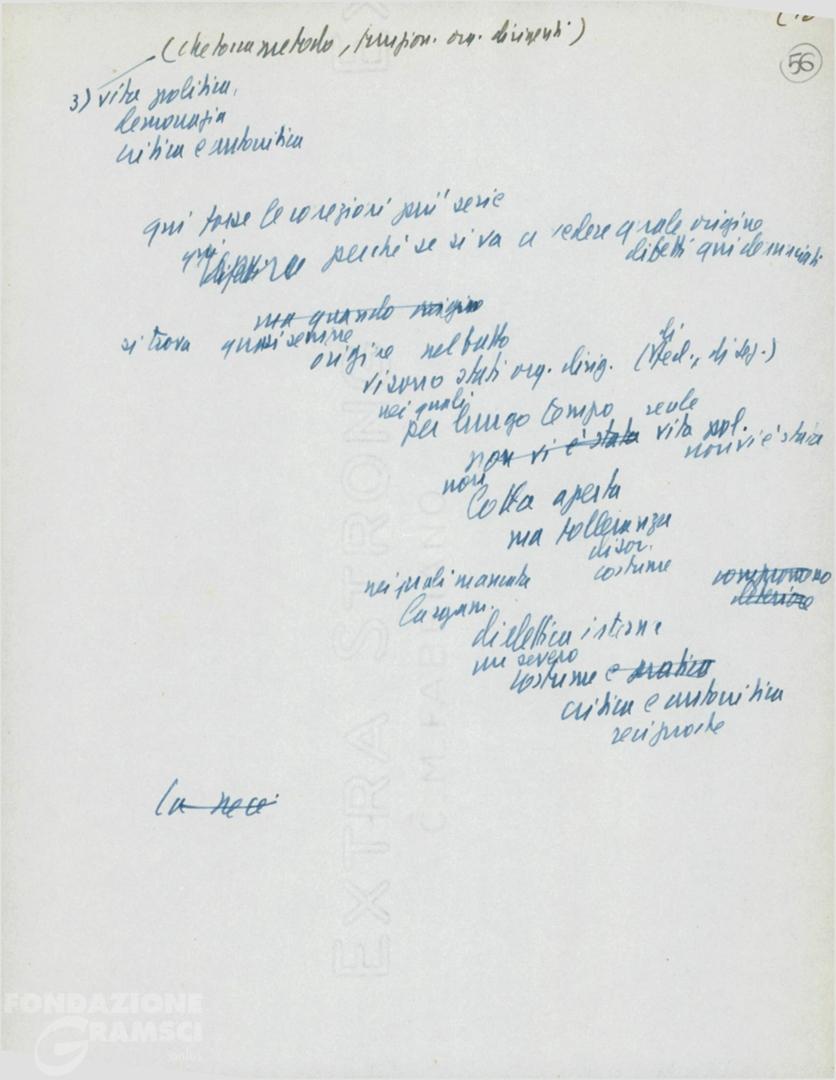 (che tocca metodo, funzion. org. dirigenti)
56
3) vita politica,
democrazia
critica e autocritica
qui forse le correzioni più serie
qui
perché se si va a vedere quale origine
difetti qui denunciati
ma quando origine
si trova quasi sempre
origine nel fatto
vi sono stati org. dirig. (di Fed., di sez.)
nei quali
per lungo tempo reale
non vi è stata vita pol.
non vi è stata
non
lotta aperta
ma tolleranza
disor.
costume
nei quali mancata
l'organi.
dialettica interna
un severo
costume e pratica
critica e autocritica
reciproche
la nece
EXTRA STRONG
C.M.FABRIANO
FONDAZIONE
GRAMSCI
onlus